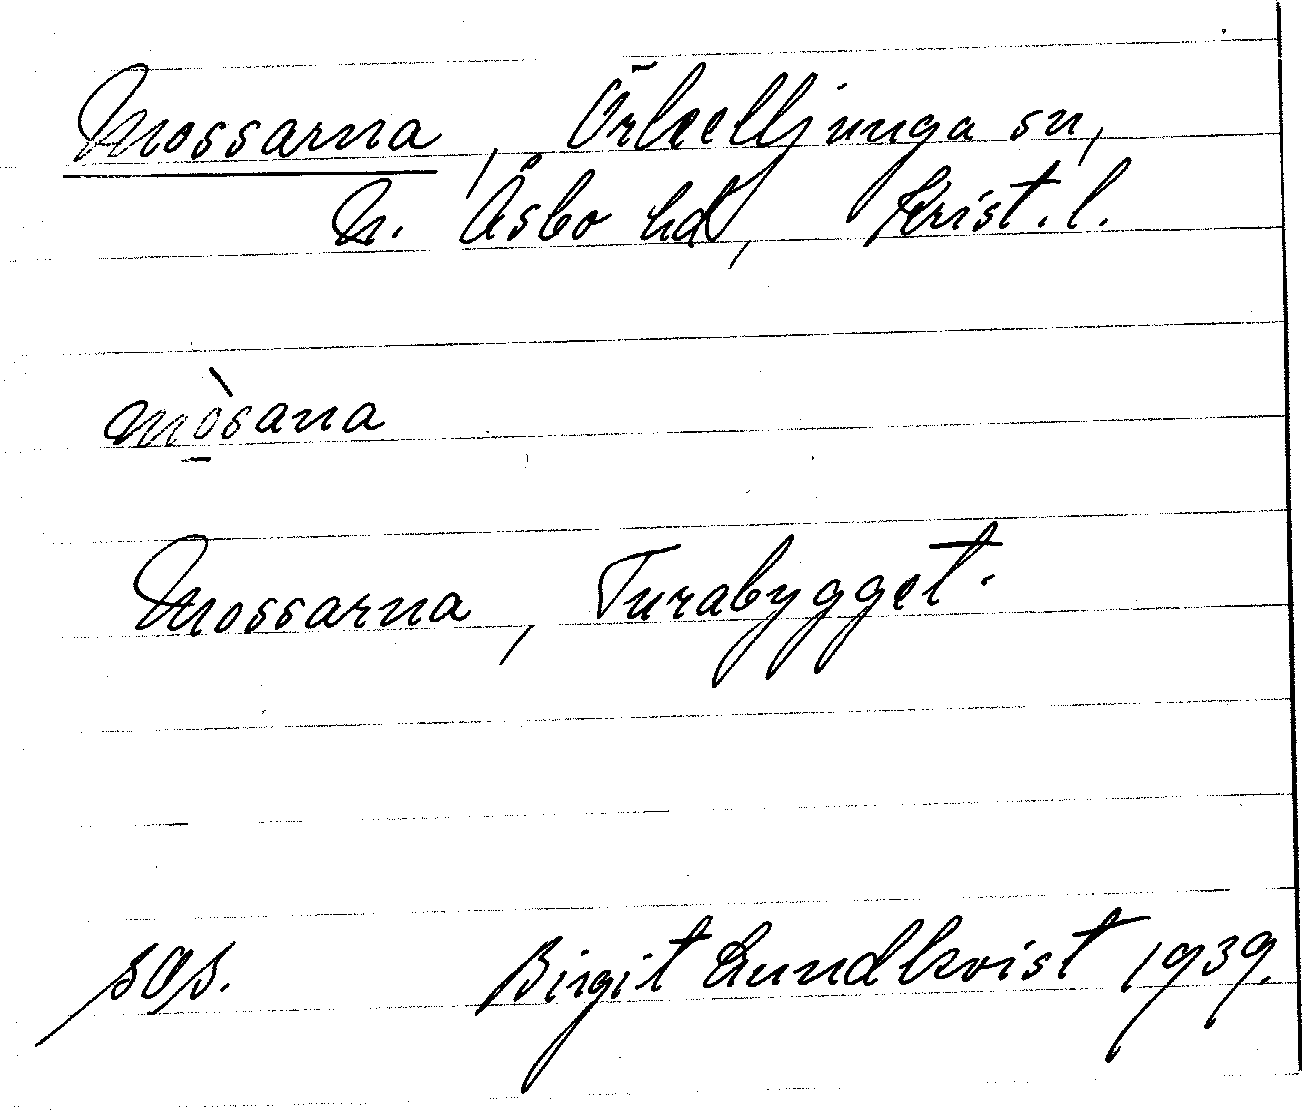 Mossarna, Örkelljunga sn,
N. Åsbo hd, Krist. l.
mòsana
Mossarna, Turabygget.
sas.
Birgit Lundkvist 1939.